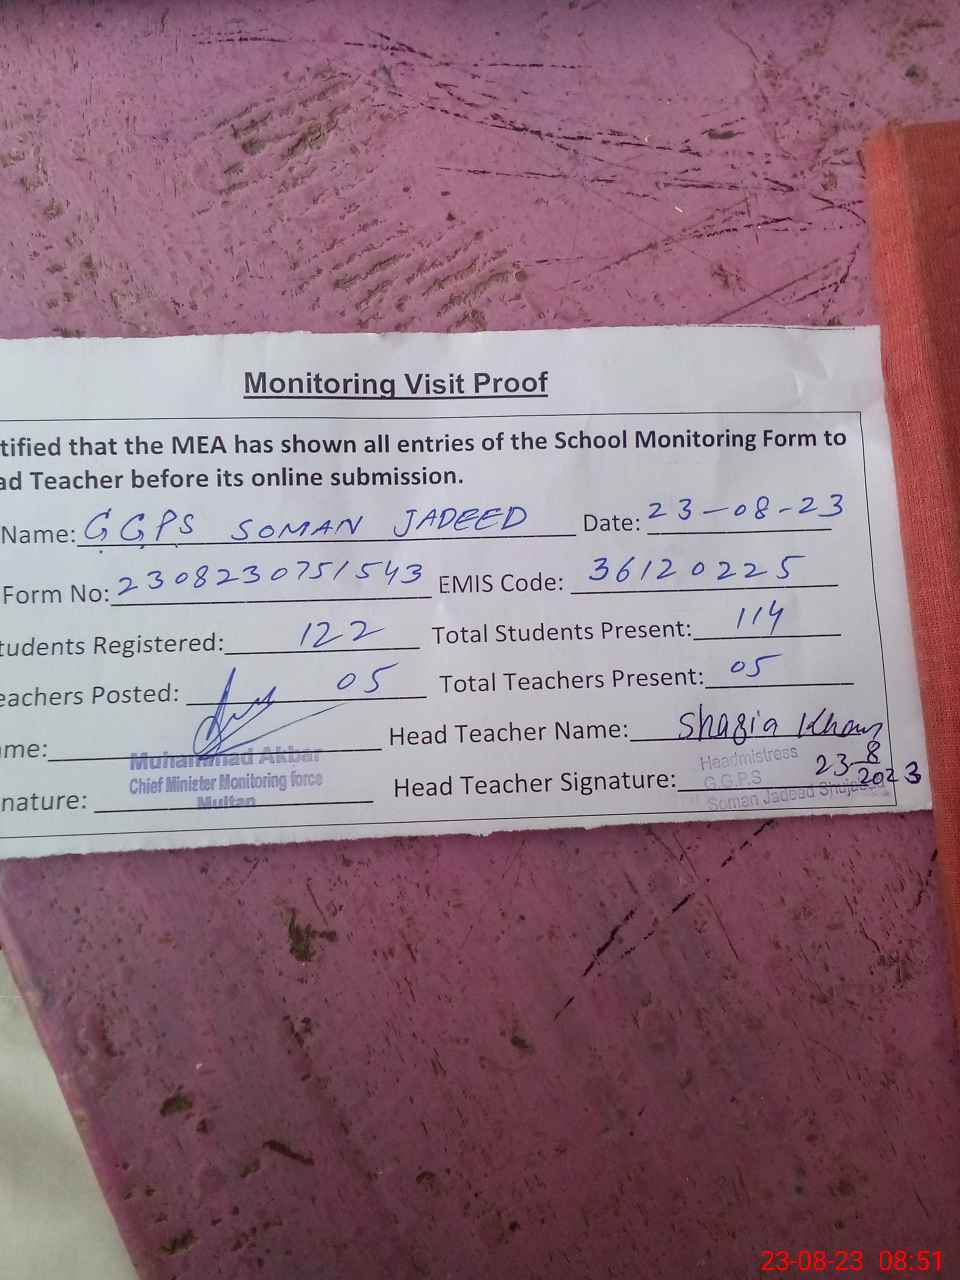 Monitoring Visit Proof
tified that the MEA has shown all entries of the School Monitoring Form to
ad Teacher before its online submission.
Name: GGPS SOMAN JADEED Date: 23-08-23
Form No: 2308230751543 EMIS Code: 36120225
tudents Registered: 122 Total Students Present: 114
eachers Posted: 05 Total Teachers Present: 05
me: Head Teacher Name: Shazia Khan
Muhammad Akbar
Chief Minister Monitoring force
Multan
nature: Head Teacher Signature: 23-8
2023
Headmistress
G.G.P.S
Soman Jadeed
23-08-23 08:51